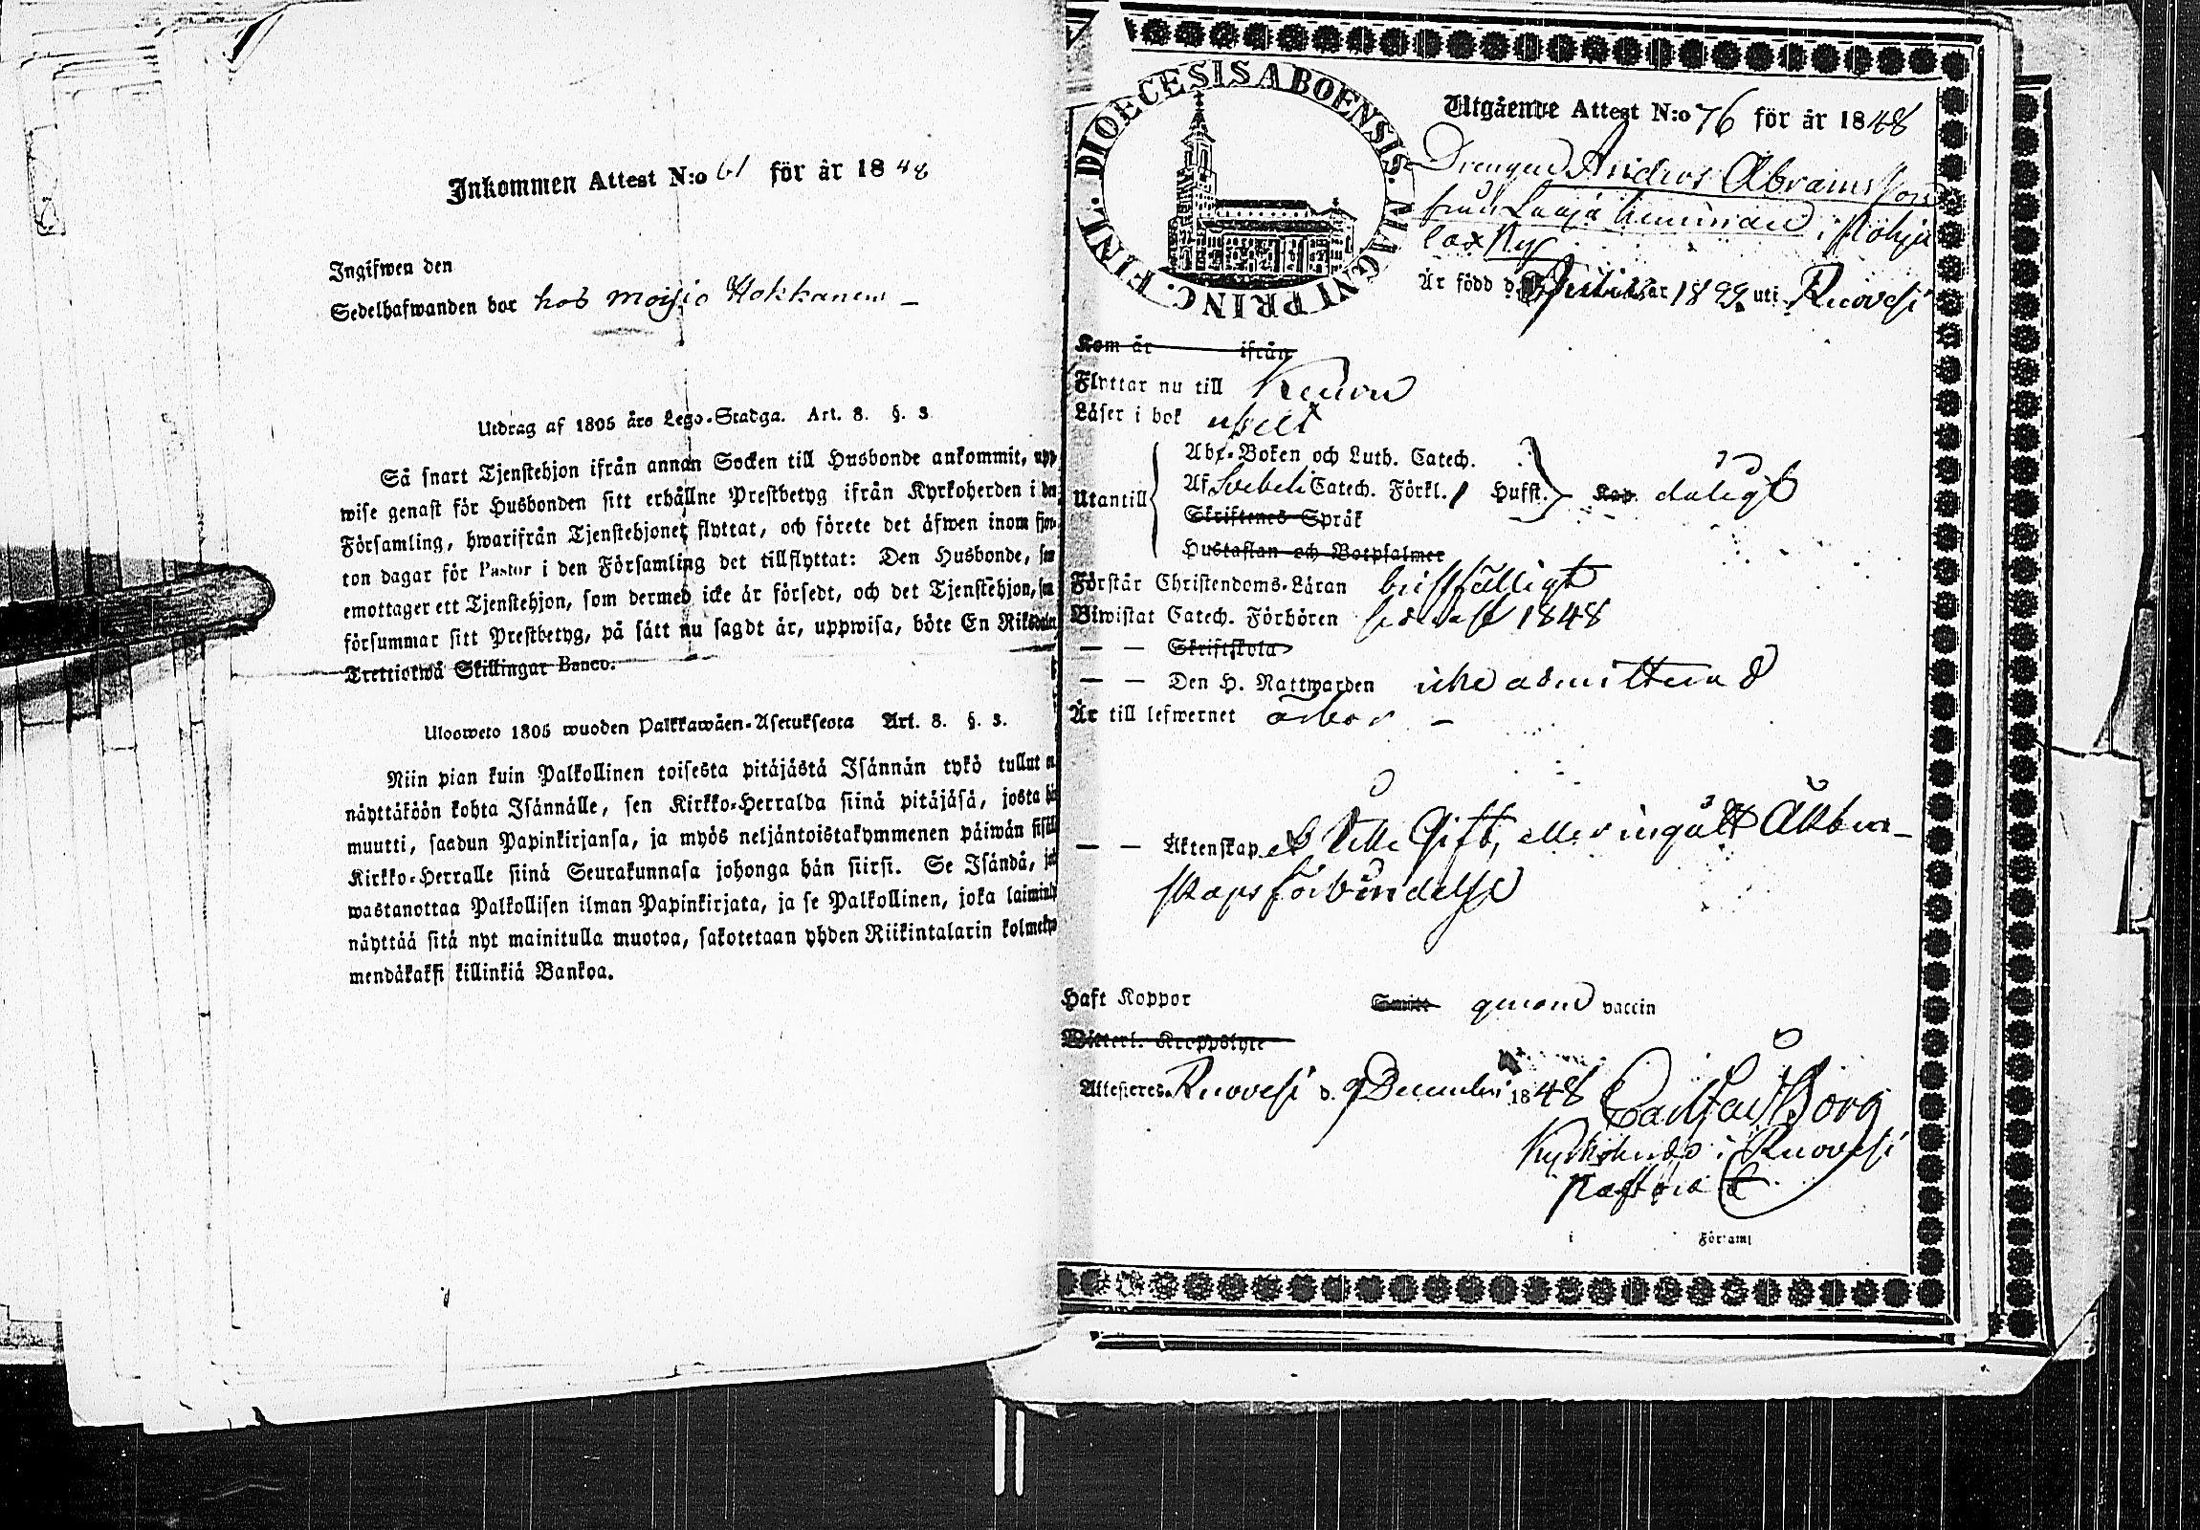 Inkommen Attest N:o 61 för år 1848
Ingifwen den
Sedelhafwanden bor hos Moisio Hokkanen –
Utdrag af 1805 års Lego-Stadga. Art. 8. §. 3
Så snart Tjenstehjon ifrån annan Socken till Husbonde ankommit, upp-
wise genast för Husbonden sitt erhållne Prestbetyg ifrån Kyrkoherden i den
Församling, hwarifrån Tjenstehjonet flyttat, och förete det äfwen inom fjor-
ton dagar för Pastor i den Församling det tillflyttat: Den Husbonde, som
emottager ett Tjenstehjon, som dermed icke är försedt, och det Tjenstehjon, som
försummar sitt Prestbetyg, på sätt nu sagdt är, uppwisa, böte En Riksdaler
Trettiotwå Skillingar Banco.
Ulosweto 1805 wuoden Palkkawäen-Asetuksesta Art. 8. §. 3.
Niin pian kuin Palkollinen toisesta pitäjästä Isännän tykö tullut on
näyttäköön kohta Isännälle, sen Kirkko-Herralda siinä pitäjäsä, josta hän
muutti, saadun Papinkirjansa, ja myös neljäntoistakymmenen päiwän sisällä
Kirkko-Herralle siinä Seurakunnasa johonga hän siirsi. Se Isändä, joka
wastanottaa Palkollisen ilman Papinkirjata, ja se Palkollinen, joka laiminly
näyttää sitä nyt mainitulla muotoa, sakotetaan yhden Riikintalarin kolmeky-
mendäkaksi killinkiä Bankoa.
FINL. DIOECESIS ABOENSIS. MAGNI PRINC.
Utgående Attest N:o 76 för år 1848
Drengen Anders Abramsson
från hemman i Pohja
Är född d. Juli år 18 uti Ruovesi
Kom år ifrån
Flyttar nu till Keuru
Läser i bok uselt
Abc-Boken och Luth. Catech.
Utantill Af Svebeli Catech. Förkl. 1 Hufst. Kap. dåligt
Skriftenes Språk
Hustaflan och Botpsalmer
Förstår Christendoms-Läran bristfälligt
Biwistat Catech. Förhören sednast 1848
– – Skriftskola
– – Den H. Nattwarden icke admitterad
Är till lefwernet ärbar –
– – Äktenskap ej Gift, eller ingått Äkten-
skapsförbindelse
Haft Koppor Smitt genom vaccin
Wittert. Kroppslyte
Attesteras. Ruovesi d. 9 December 1848 Borg
Kyrkoherde i Ruovesi
Pastorat
i Församl